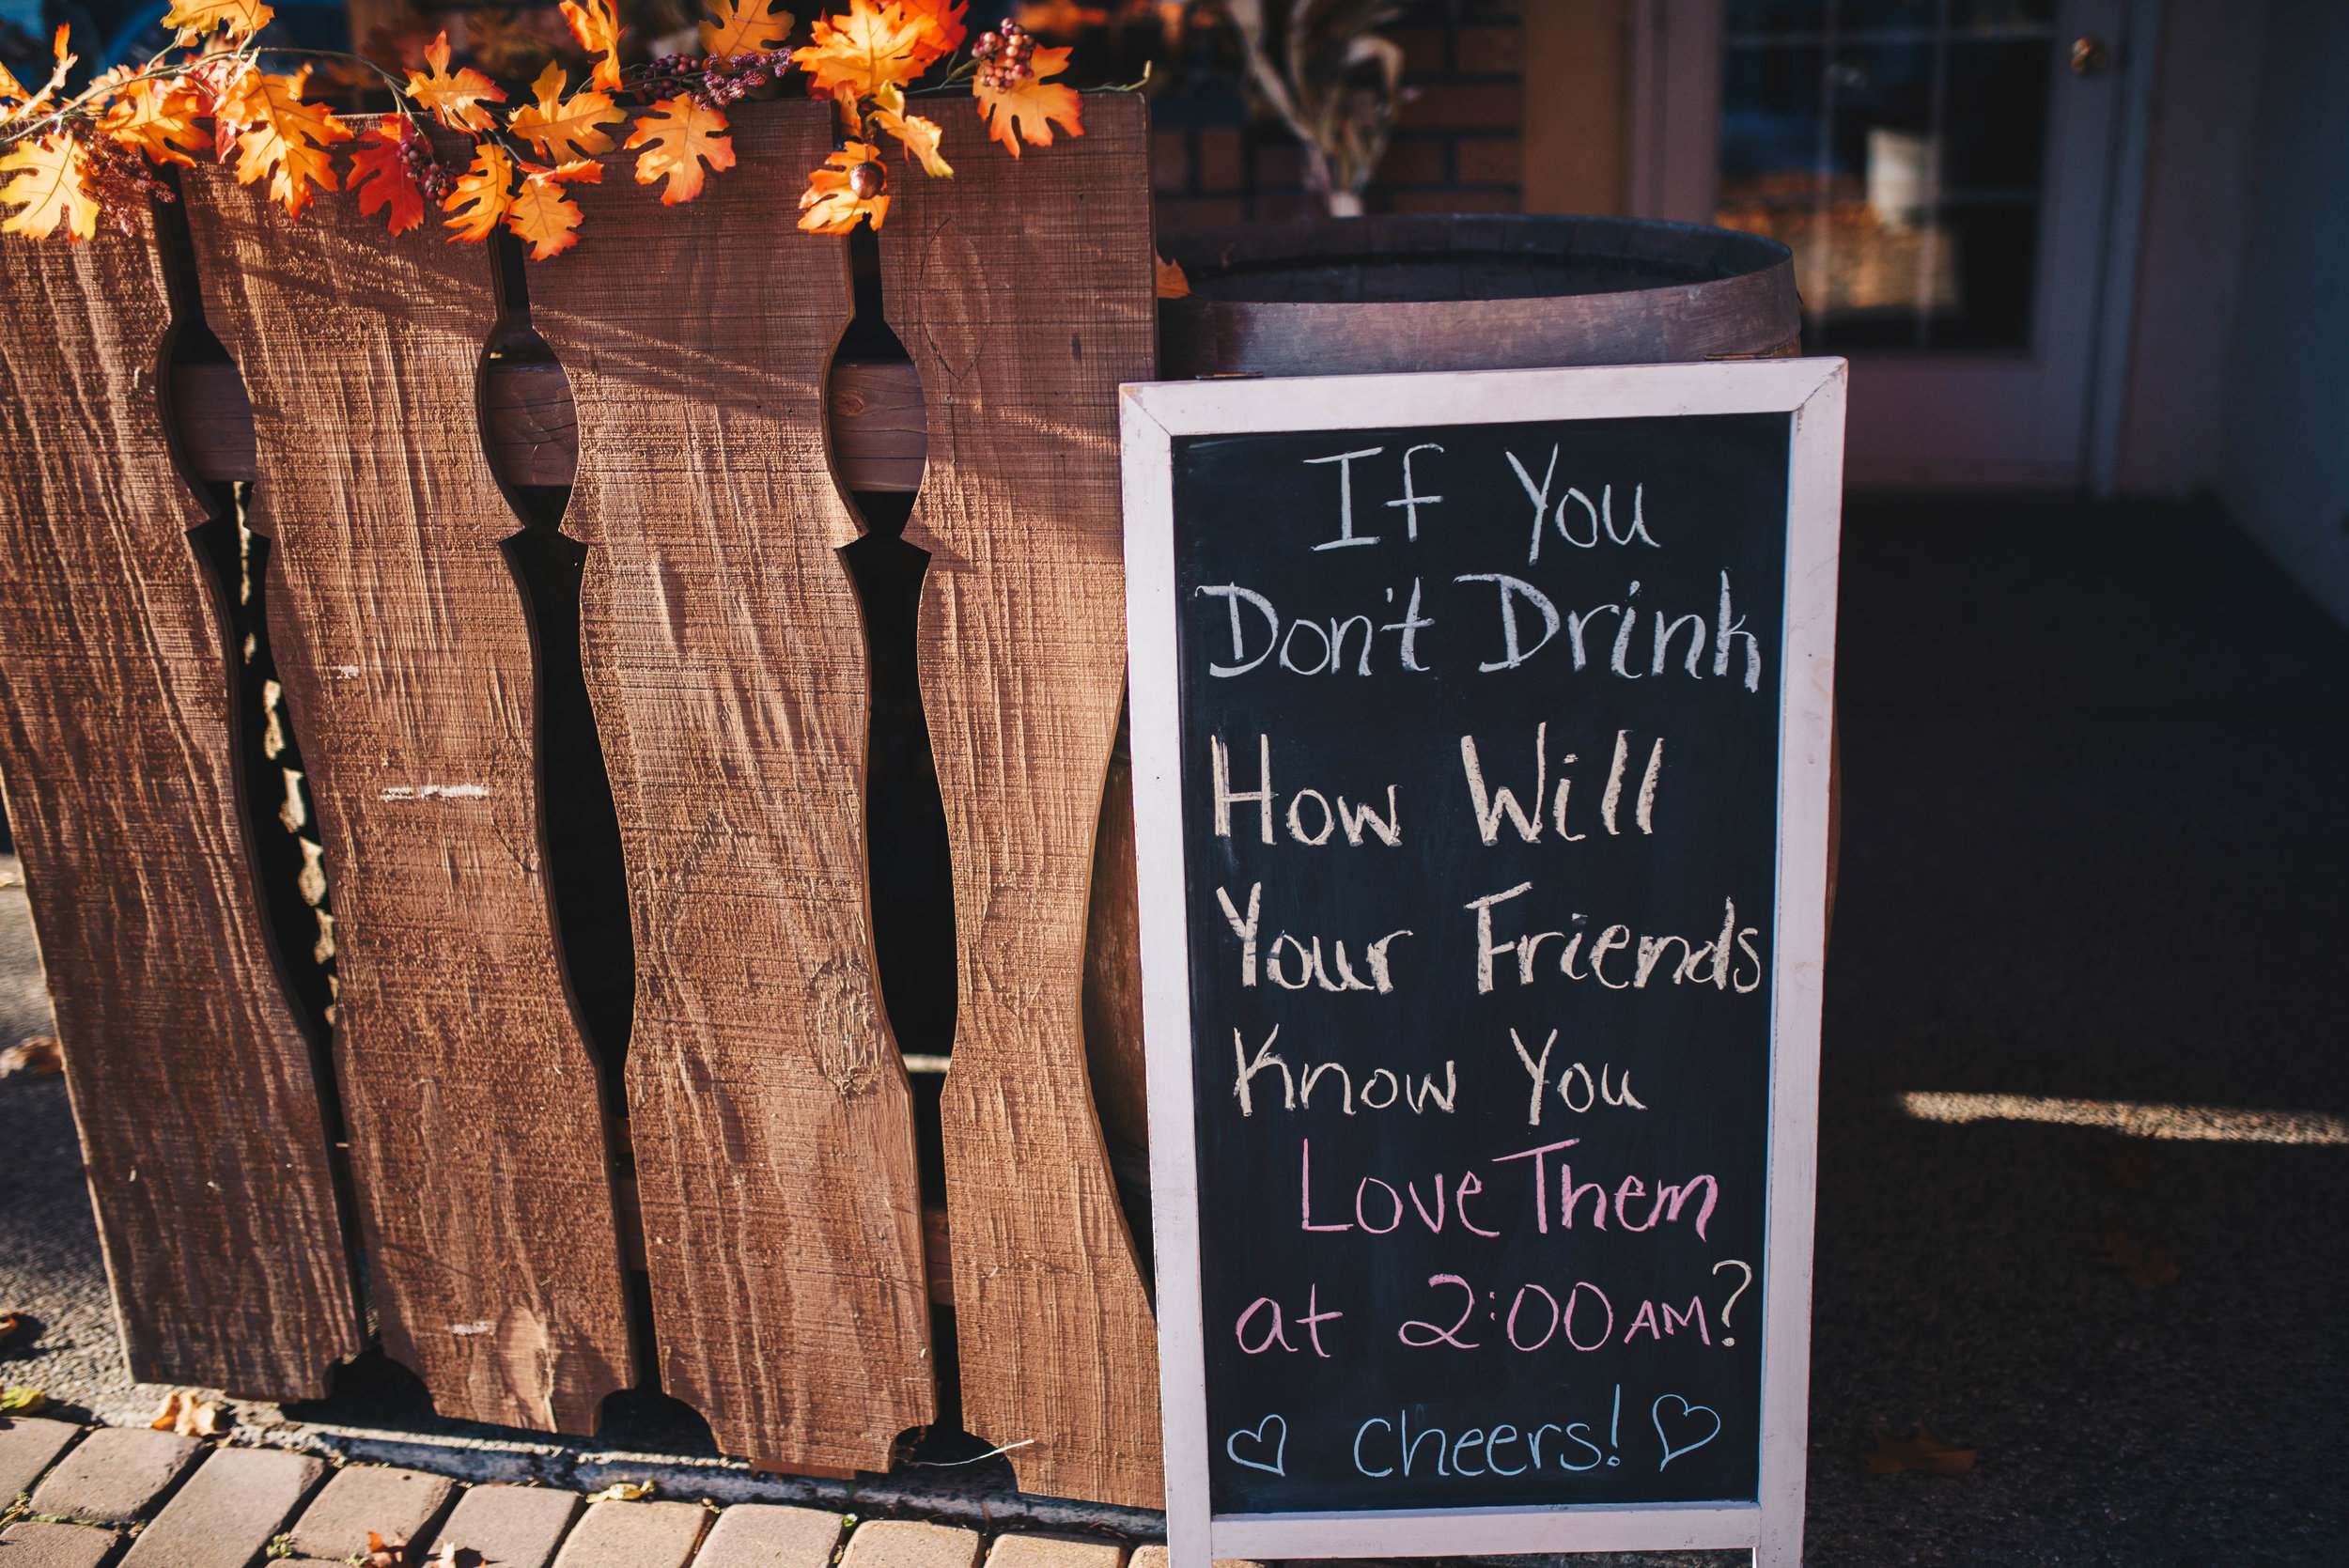 If You
Don't Drink
How Will
Your Friends
Know You
Love Them
at 2:00AM?
♡ cheers! ♡